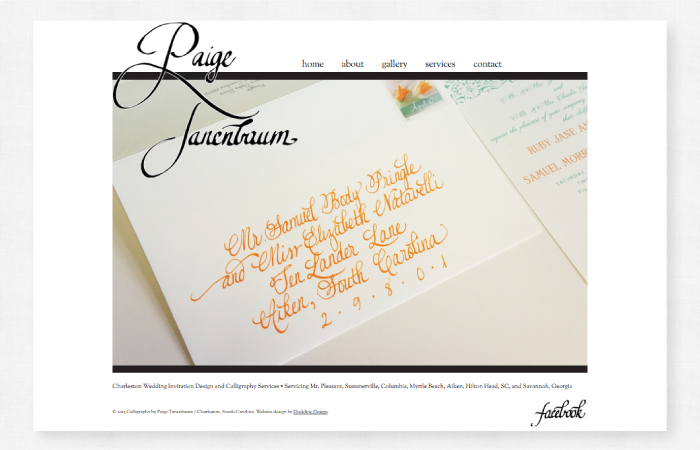 Paige
Tanenbaum
home about gallery services contact
RUBY JANE
SAMUEL
Mr. Samuel Body Pringle
and Miss Elizabeth Natavelli
Ten Lander Lane
Aiken, South Carolina
2 · 9 · 8 · 0 · 1
Charleston Wedding Invitation Design and Calligraphy Services • Servicing Mt. Pleasant, Summerville, Columbia, Myrtle Beach, Aiken, Hilton Head, SC, and Savannah, Georgia
Calligraphy by Paige Tanenbaum / Charleston, South Carolina. Website design by Dodeline Design.
facebook